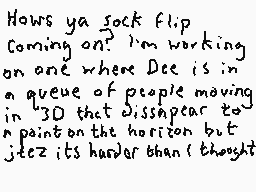 Hows ya sock flip
coming on? I'm working
on one where Dee is in
a queue of people moving
in 3D that dissapear to
a point on the horizon but
jeez its harder than I thought